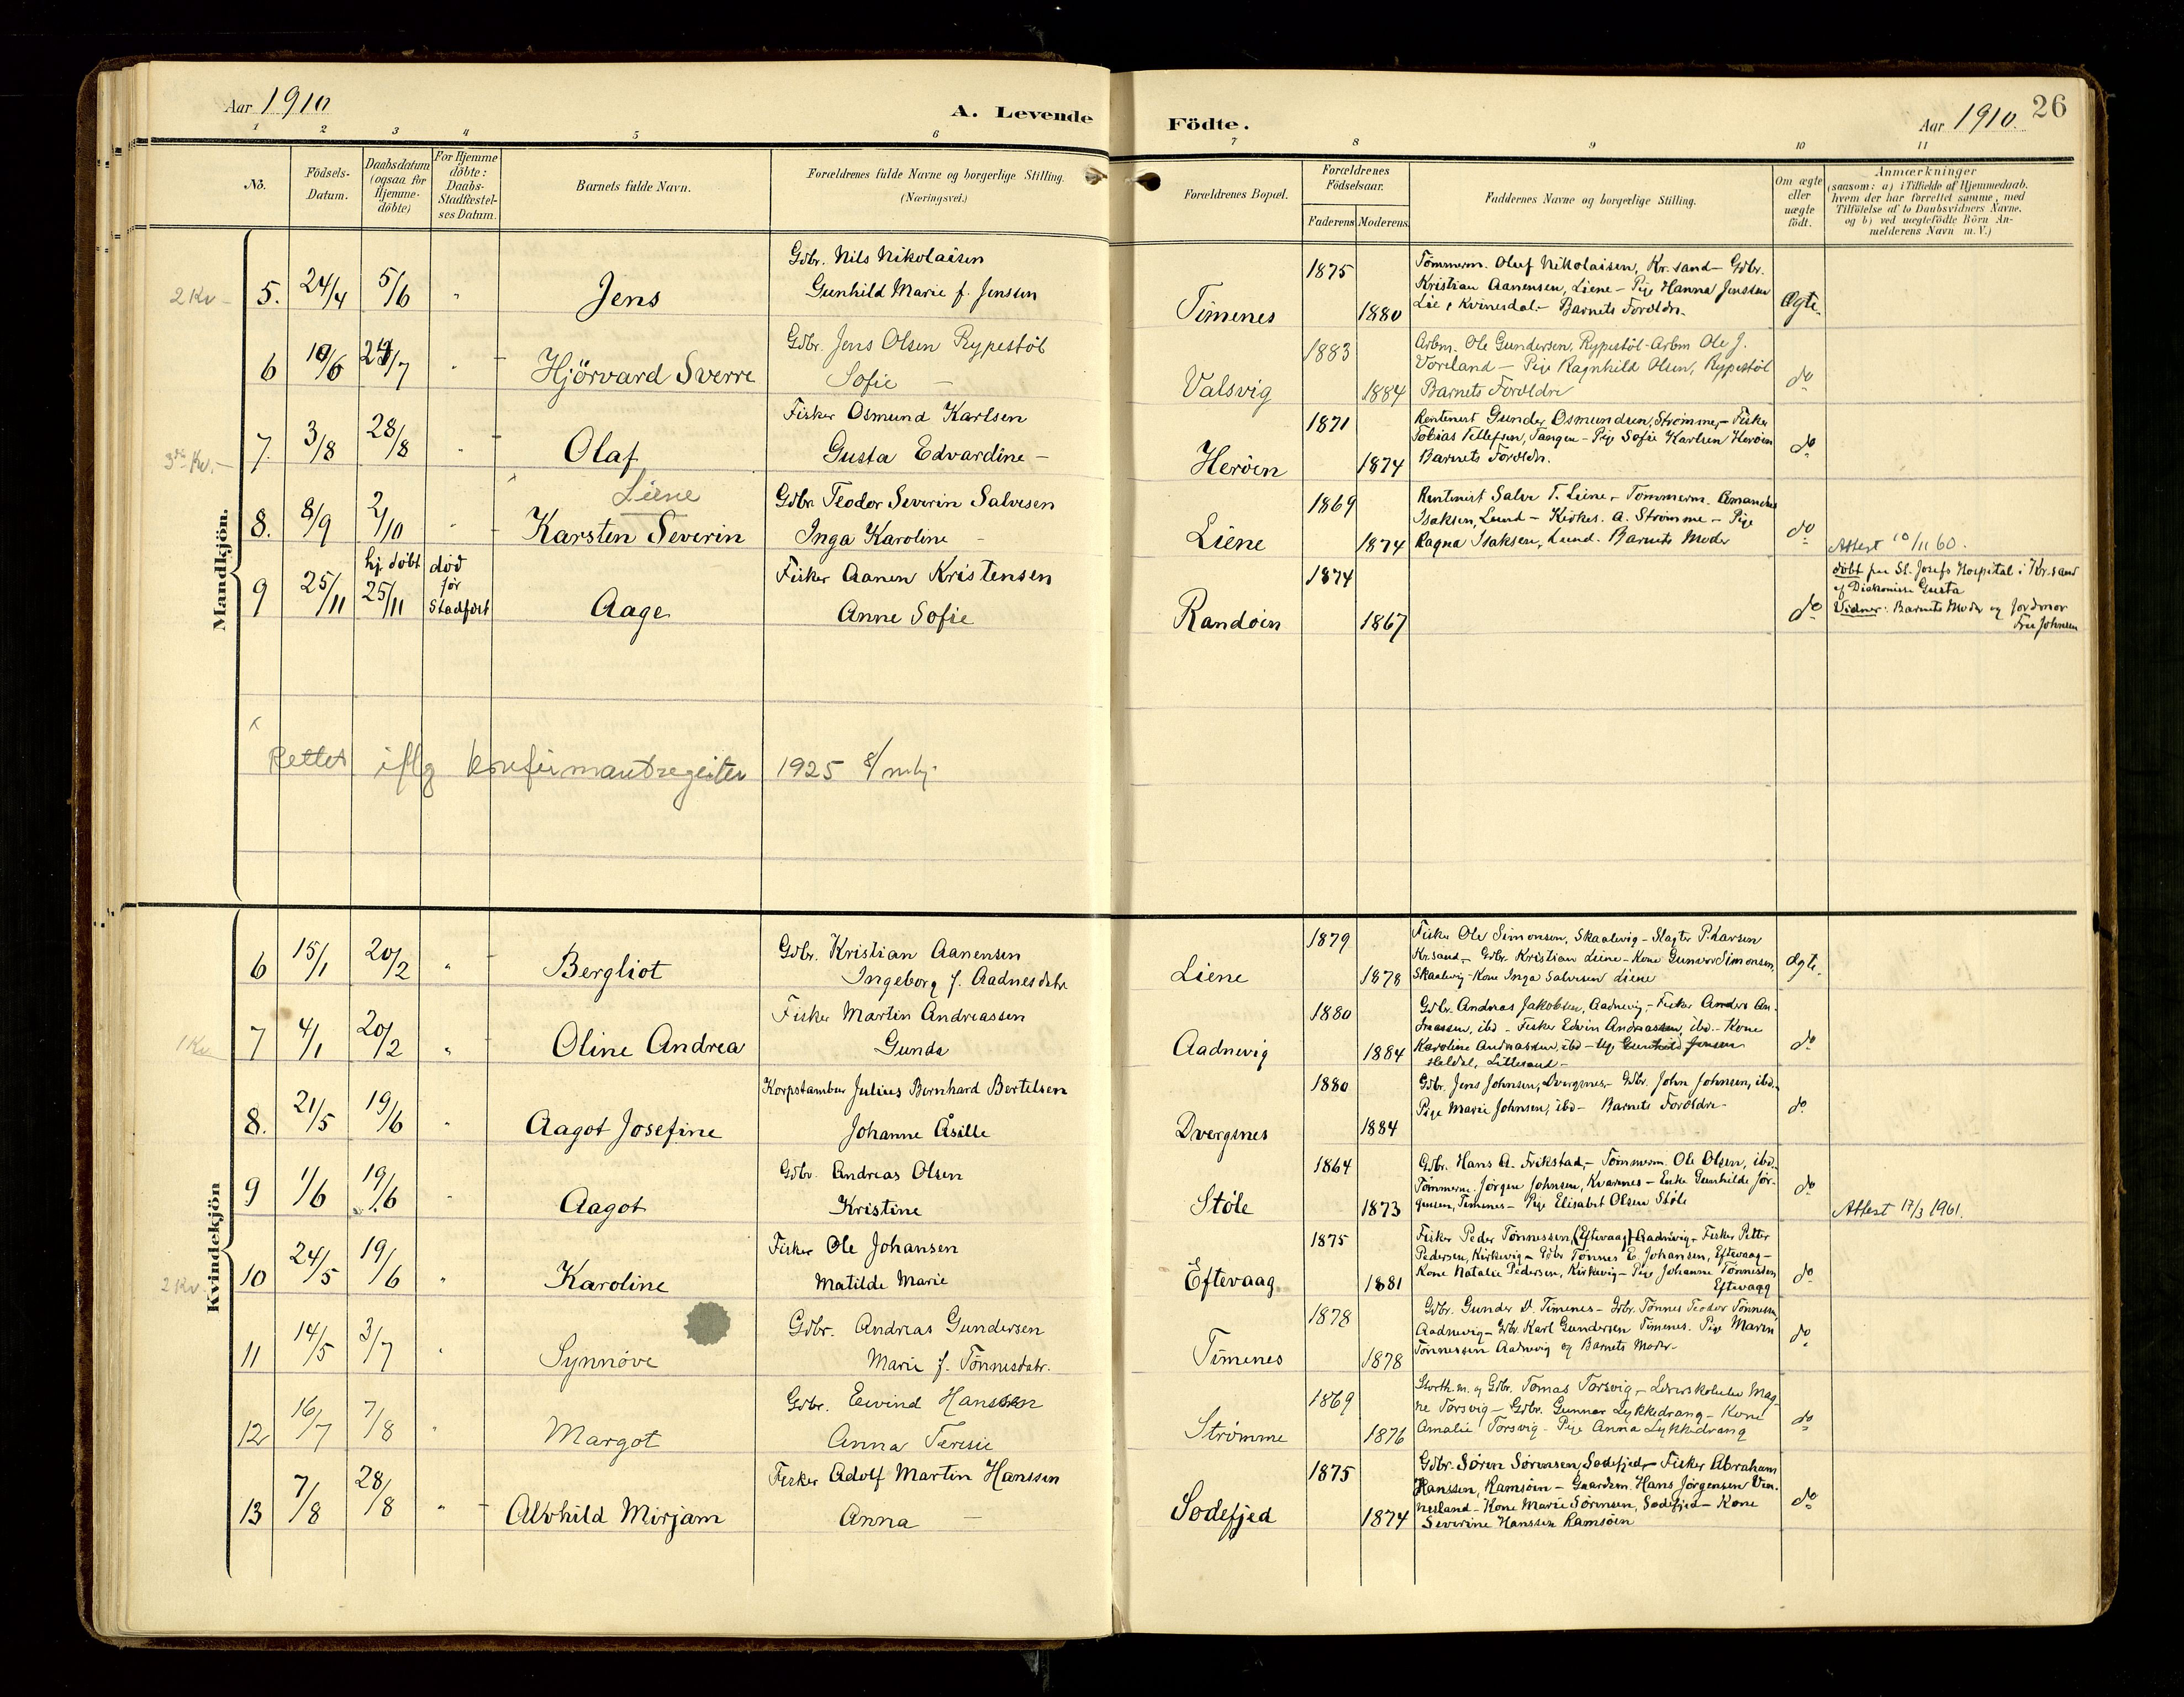 Aar 1910
A. Levende Födte.
Aar 1910. 26
1 2 3 4 5 6 7 8 9 10 11
No.
Födsels-Datum.
Daabsdatum (ogsaa for Hjemme-döbte)
For Hjemme döbte: Daabs-Stadfæstel-ses Datum.
Barnets fulde Navn.
Forældrenes fulde Navne og borgerlige Stilling. (Næringsvei.)
Forældrenes Bopæl.
Forældrenes Födselsaar.
Faderens Moderens
Faddernes Navne og borgerlige Stilling.
Om ægte eller uægte födt.
Anmærkninger
(saasom: a) i Tilfælde af Hjemmedaab, hvem der har forrettet samme, med Tilföielse af to Daabsvidners Navne, og b) ved uægtefödte Börn An-melderens Navn m. V.)
Mandkjön.
2 Kv -
5. 24/4 5/6 " Jens
Gdbr. Nils Nikolaisen
Gunhild Marie f. Jenssen
Timenes 1875 1880
Tömmerm. Oluf Nikolaisen, Kr.sand - Gdbr.
Kristian Aanensen, Liene - Pige Hanna Jenssen
Lie, Kvinesdal - Barnets Foroldre.
Ægte.
6 /6 /7 " Hjörvard Sverre
Gdbr. Jens Olsen Rypestöl
Sofie -
Valsvig 1883 1884
Arbm. Ole Gundersen, Rypestöl - Arbm Ole J.
Voreland - Pige Ragnhild Olsen, Rypestöl
Barnets Foroldre
do
3die Kv. -
7. 3/8 28/8 " Olaf
Fisker Osmund Karlsen
Gusta Edvardine -
Heröen 1871 1874
Rentenist Gunder Osmundsen, Strømme - Fisker
Tobias Tellefsen, Tangen - Pige Sofie Karlsen Heröen
Barnets Foroldre.
do
Liene
8. 8/9 2/10 " Karsten Severin
Gdbr Teodor Severin Salvesen
Inga Karoline -
Liene 1869 1874
Rentenist Salve T. Liene - Tømmerm. Amandus
Isaksen, Lund - Kirkes. A. Strømme - Pige
Ragna Isaksen, Lund. Barnets Moder
do
Attest 10/11 60.
9 25/11 hj. döbt 25/11 död før Stadfæst Aage
Fisker Aanen Kristensen
Anne Sofie
Randöen 1874 1867
do
döbt paa St. Josefs Hospital i Kr.sand
af Diakonisse Gusta
Vidner: Barnets Moder og Jordmor
Fru Johnsen
x
Rettet iflg konfirmantregister 1925
Kvindekjön
6 15/1 20/2 " Bergliot
Gdbr. Kristian Aanensen
Ingeborg f. Aadnesdatr
Liene 1879 1878
Fisker Ole Simonsen, Skaalevig - Slagter P. Larsen
Kr.sand - Gdbr Kristian Liene - Kone Gunvor Simonsen,
Skaalevig - Kone Inga Salvesen Liene
Ægte.
1 Kv
7 4/1 20/2 " Oline Andrea
Fisker Martin Andreassen
Gunda
Aadnevig 1880 1884
Gdbr. Andreas Jakobsen, Aadnevig - Fisker Anders An-
dreassen, ibd - Fisker Edvin Andreassen, ibd. - Kone
Karoline Andreassen, ibd - Ug. Gunhild Jensen
Heldal, Lillesand -
do
8. 21/5 19/6 " Aagot Josefine
Korpstambur Julius Bernhard Bertelsen
Johanne Åsille
Dvergsnes 1880 1884
Gdbr. Jens Johnsen, Dvergsnes - Gdbr. John Johnsen, ibd.
Pige Marie Johnsen, ibd - Barnets Foroldre -
do
9 1/6 19/6 " Aagot
Gdbr. Andreas Olsen
Kristine
Støle 1864 1873
Gdbr. Hans A. Frikstad - Tömmerm. Ole Olsen, ibd.
Tømmerm. Jørgen Johnsen, Kvarnes - Enke Gunhilde Jør-
gensen, Timenes - Pige Elisabet Olsen Støle
do
Attest 17/3 1961.
2 Kv.
10 24/5 19/6 " Karoline
Fisker Ole Johansen
Matilde Marie
Eftevaag 1875 1881
Fisker Peder Tønnessen, (Eftevaag) Aadnevig - Fisker Petter
Pedersen, Kirkevig - Gdbr Tønnes E. Johansen, Eftevaag -
Kone Natalie Pedersen, Kirkevig - Pige Johanne Tønnessen
Eftevaag
do
11 14/5 3/7 " Synnöve
Gdbr. Andreas Gundersen
Marie f. Tönnesdatr.
Timenes 1878 1878
Gdbr. Gunder D. Timenes - Gdbr. Tønnes Teodor Tønnesen,
Aadnevig - Gdbr. Karl Gundersen Timenes. Pige Maren
Tønnessen Aadnevig og Barnets Moder -
do
12 16/7 7/8 " Margot
Gdbr. Eivind Hanssen
Anna Teresie
Strömme 1869 1876
Storth.m. og Gdbr. Tomas Torsvig - Lærerskoleelev Mag-
ne Torsvig - Gdbr. Gunnar Lykkedrang - Kone
Amalie Torsvig - Pige Anna Lykkedrang
do
13 7/8 28/8 " Alvhild Mirjam
Fisker Adolf Martin Hanssen
Anna -
Sodefjed 1875 1874
Gdbr. Søren Sørensen, Sodefjed - Fisker Abraham
Hanssen, Ramsöen - Gaardsm. Hans Jørgensen Ven-
nesland - Kone Marie Sörensen, Sodefjed - Kone
Severine Hanssen Ramsöen
do